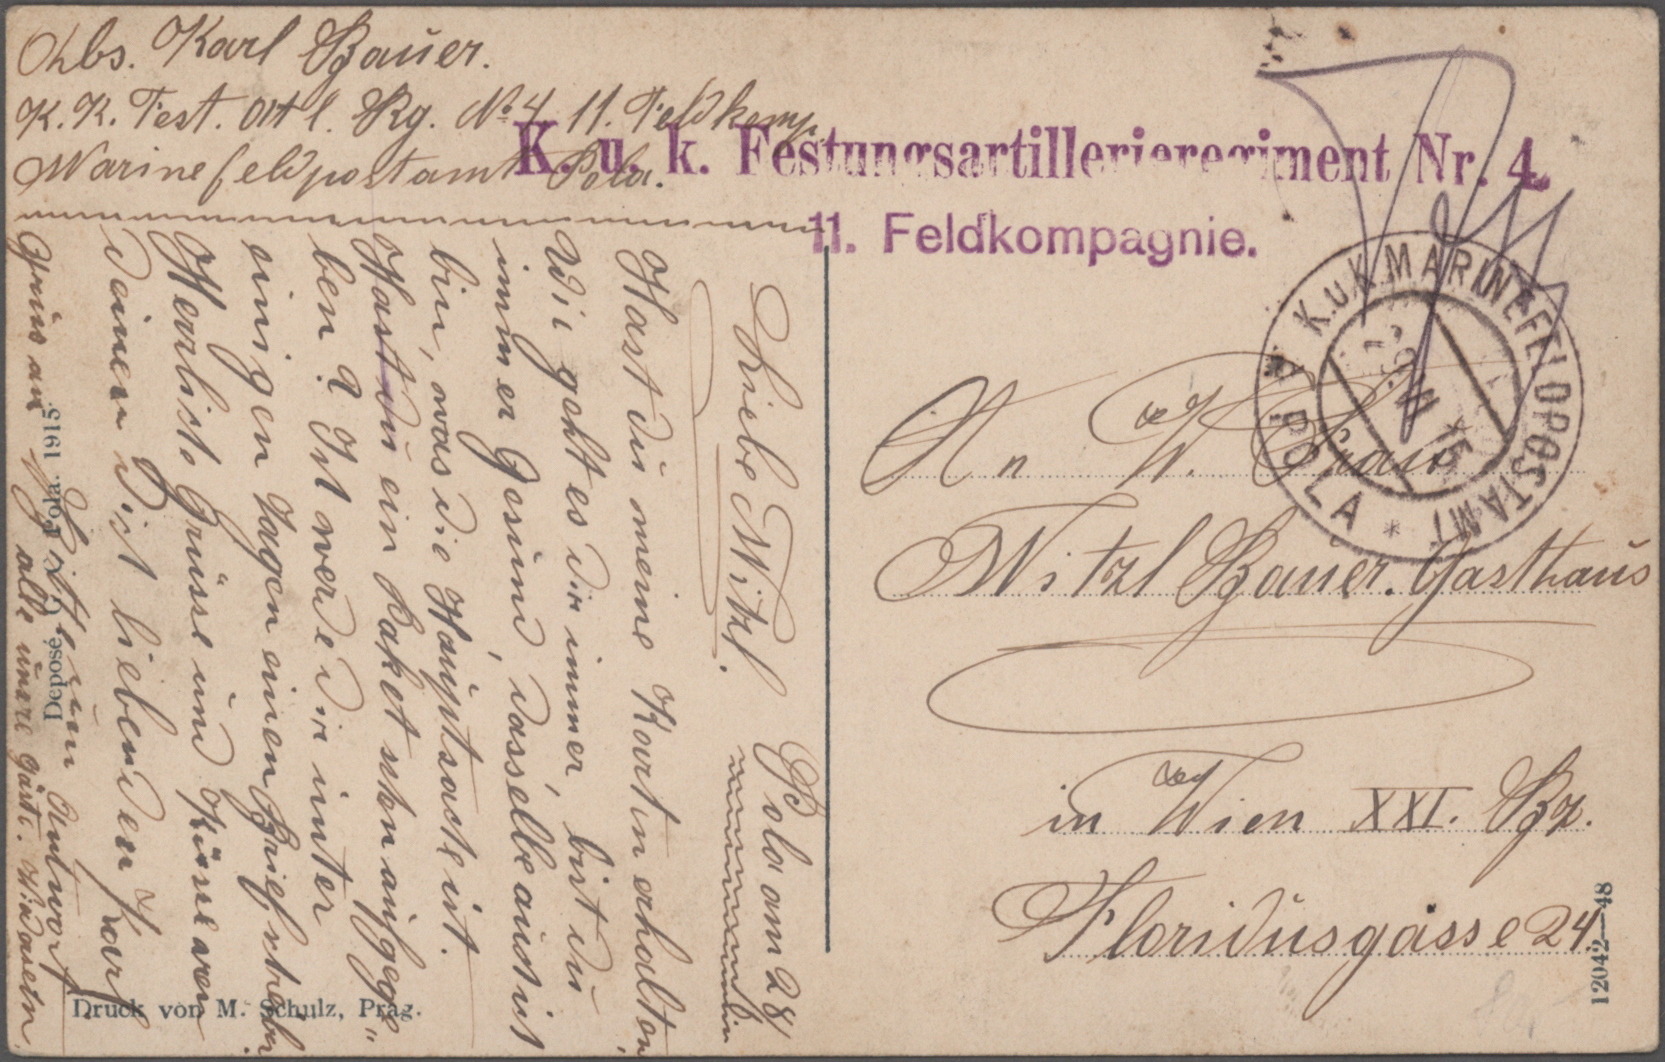 Abs. Karl Bauer.
K. K. Fest. Att l. Rg. No 4. 11. Feldkomp.
Marinefeldpostamt Pola.
K. u. k. Festungsartillerieregiment Nr. 4.
11. Feldkompagnie.
K.u.K. MARINEFELDPOSTAMT
* POLA *
An W. Frau
Mitzl Bauer. Gasthaus
in Wien XXI. Bz.
Floridusgasse 24.
Pola am 28/
Liebe Mitzl.
Hast du meine Karten erhalten,
Wie geht es dir immer, bist du
immer Gesund, dasselbe auch ich
bin, was die Hauptsache ist.
Hast du ein Paket schon aufgege„
ben? Ich werde dir unter
einigen Tagen einen Brief schreiben
Herrlichste Grüsse und Küsse von
deinen dich liebenden Karl
Bitte um Antwort
Gruss an alle unsere Gäste.
Deposé Pola. 1915.
Druck von M. Schulz, Prag.
12042—48